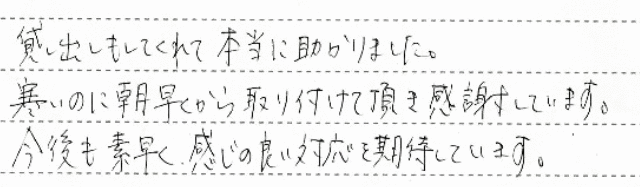 貸し出しもしてくれて本当に助かりました。
寒いのに朝早くから取り付けて頂き感謝しています。
今後も素早く、感じの良い対応を期待しています。